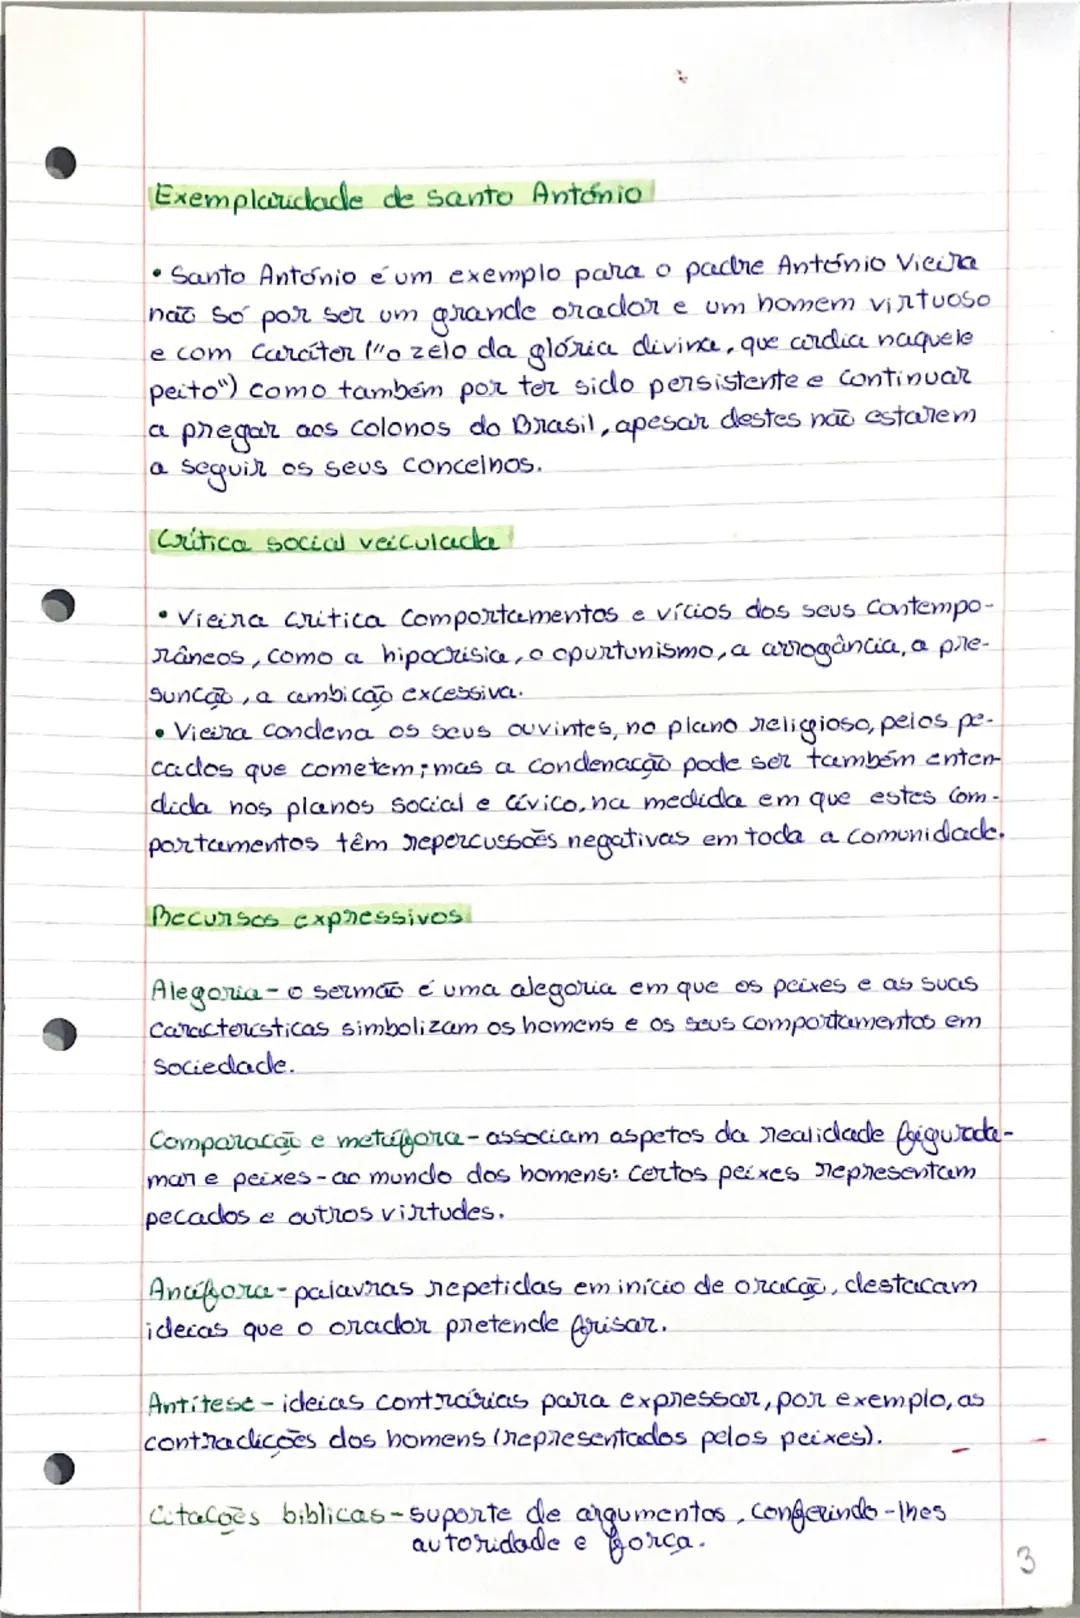 Exemplaridade de Santo António
• Santo António é um exemplo para o padre António Vieira
não só por ser um grande orador e um homem virtuoso
e com caráter ("o zelo da glória divina, que ardia naquele
peito") como também por ter sido persistente e continuar
a pregar aos colonos do Brasil, apesar destes não estarem
a seguir os seus concelhos.
Crítica social veiculada
• Vieira critica comportamentos e vícios dos seus contempo-
râneos, como a hipocrisia, o oportunismo, a arrogância, a pre-
sunção, a ambição excessiva.
• Vieira condena os seus ouvintes, no plano religioso, pelos pe-
cados que cometem; mas a condenação pode ser também enten-
dida nos planos social e cívico, na medida em que estes com-
portamentos têm repercussões negativas em toda a comunidade.
Recursos expressivos
Alegoria - o sermão é uma alegoria em que os peixes e as suas
características simbolizam os homens e os seus comportamentos em
sociedade.
Comparação e metáfora - associam aspetos da realidade figurada-
mar e peixes - ao mundo dos homens: certos peixes representam
pecados e outros virtudes.
Anáfora - palavras repetidas em início de oração, destacam
ideias que o orador pretende frisar.
Antítese - ideias contrárias para expressar, por exemplo, as
contradições dos homens (representados pelos peixes).
Citações bíblicas - suporte de argumentos, conferindo-lhes
autoridade e força.
3